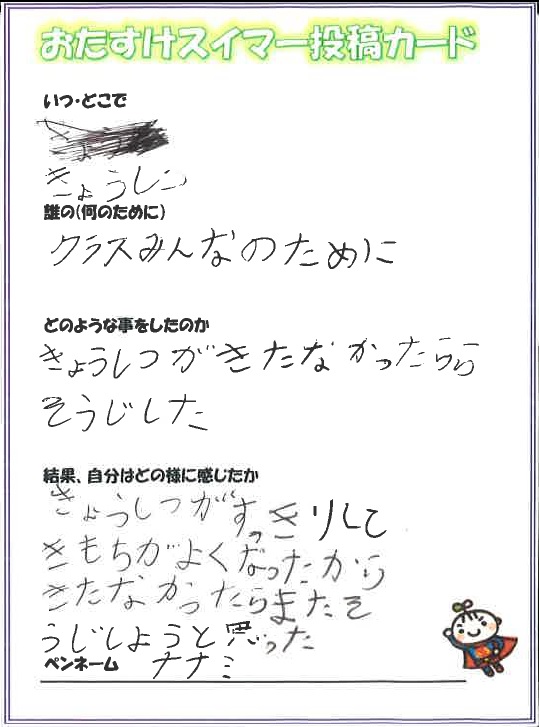 おたすけスイマー投稿カード
いつ・どこで
きょうしつ
誰の(何のために)
クラスみんなのために
どのような事をしたのか
きょうしつがきたなかったらら
そうじした
結果、自分はどの様に感じたか
きょうしつがすっきりして
きもちがよくなったから
きたなかったらまたそ
うじしようと思った
ペンネーム ナナミ